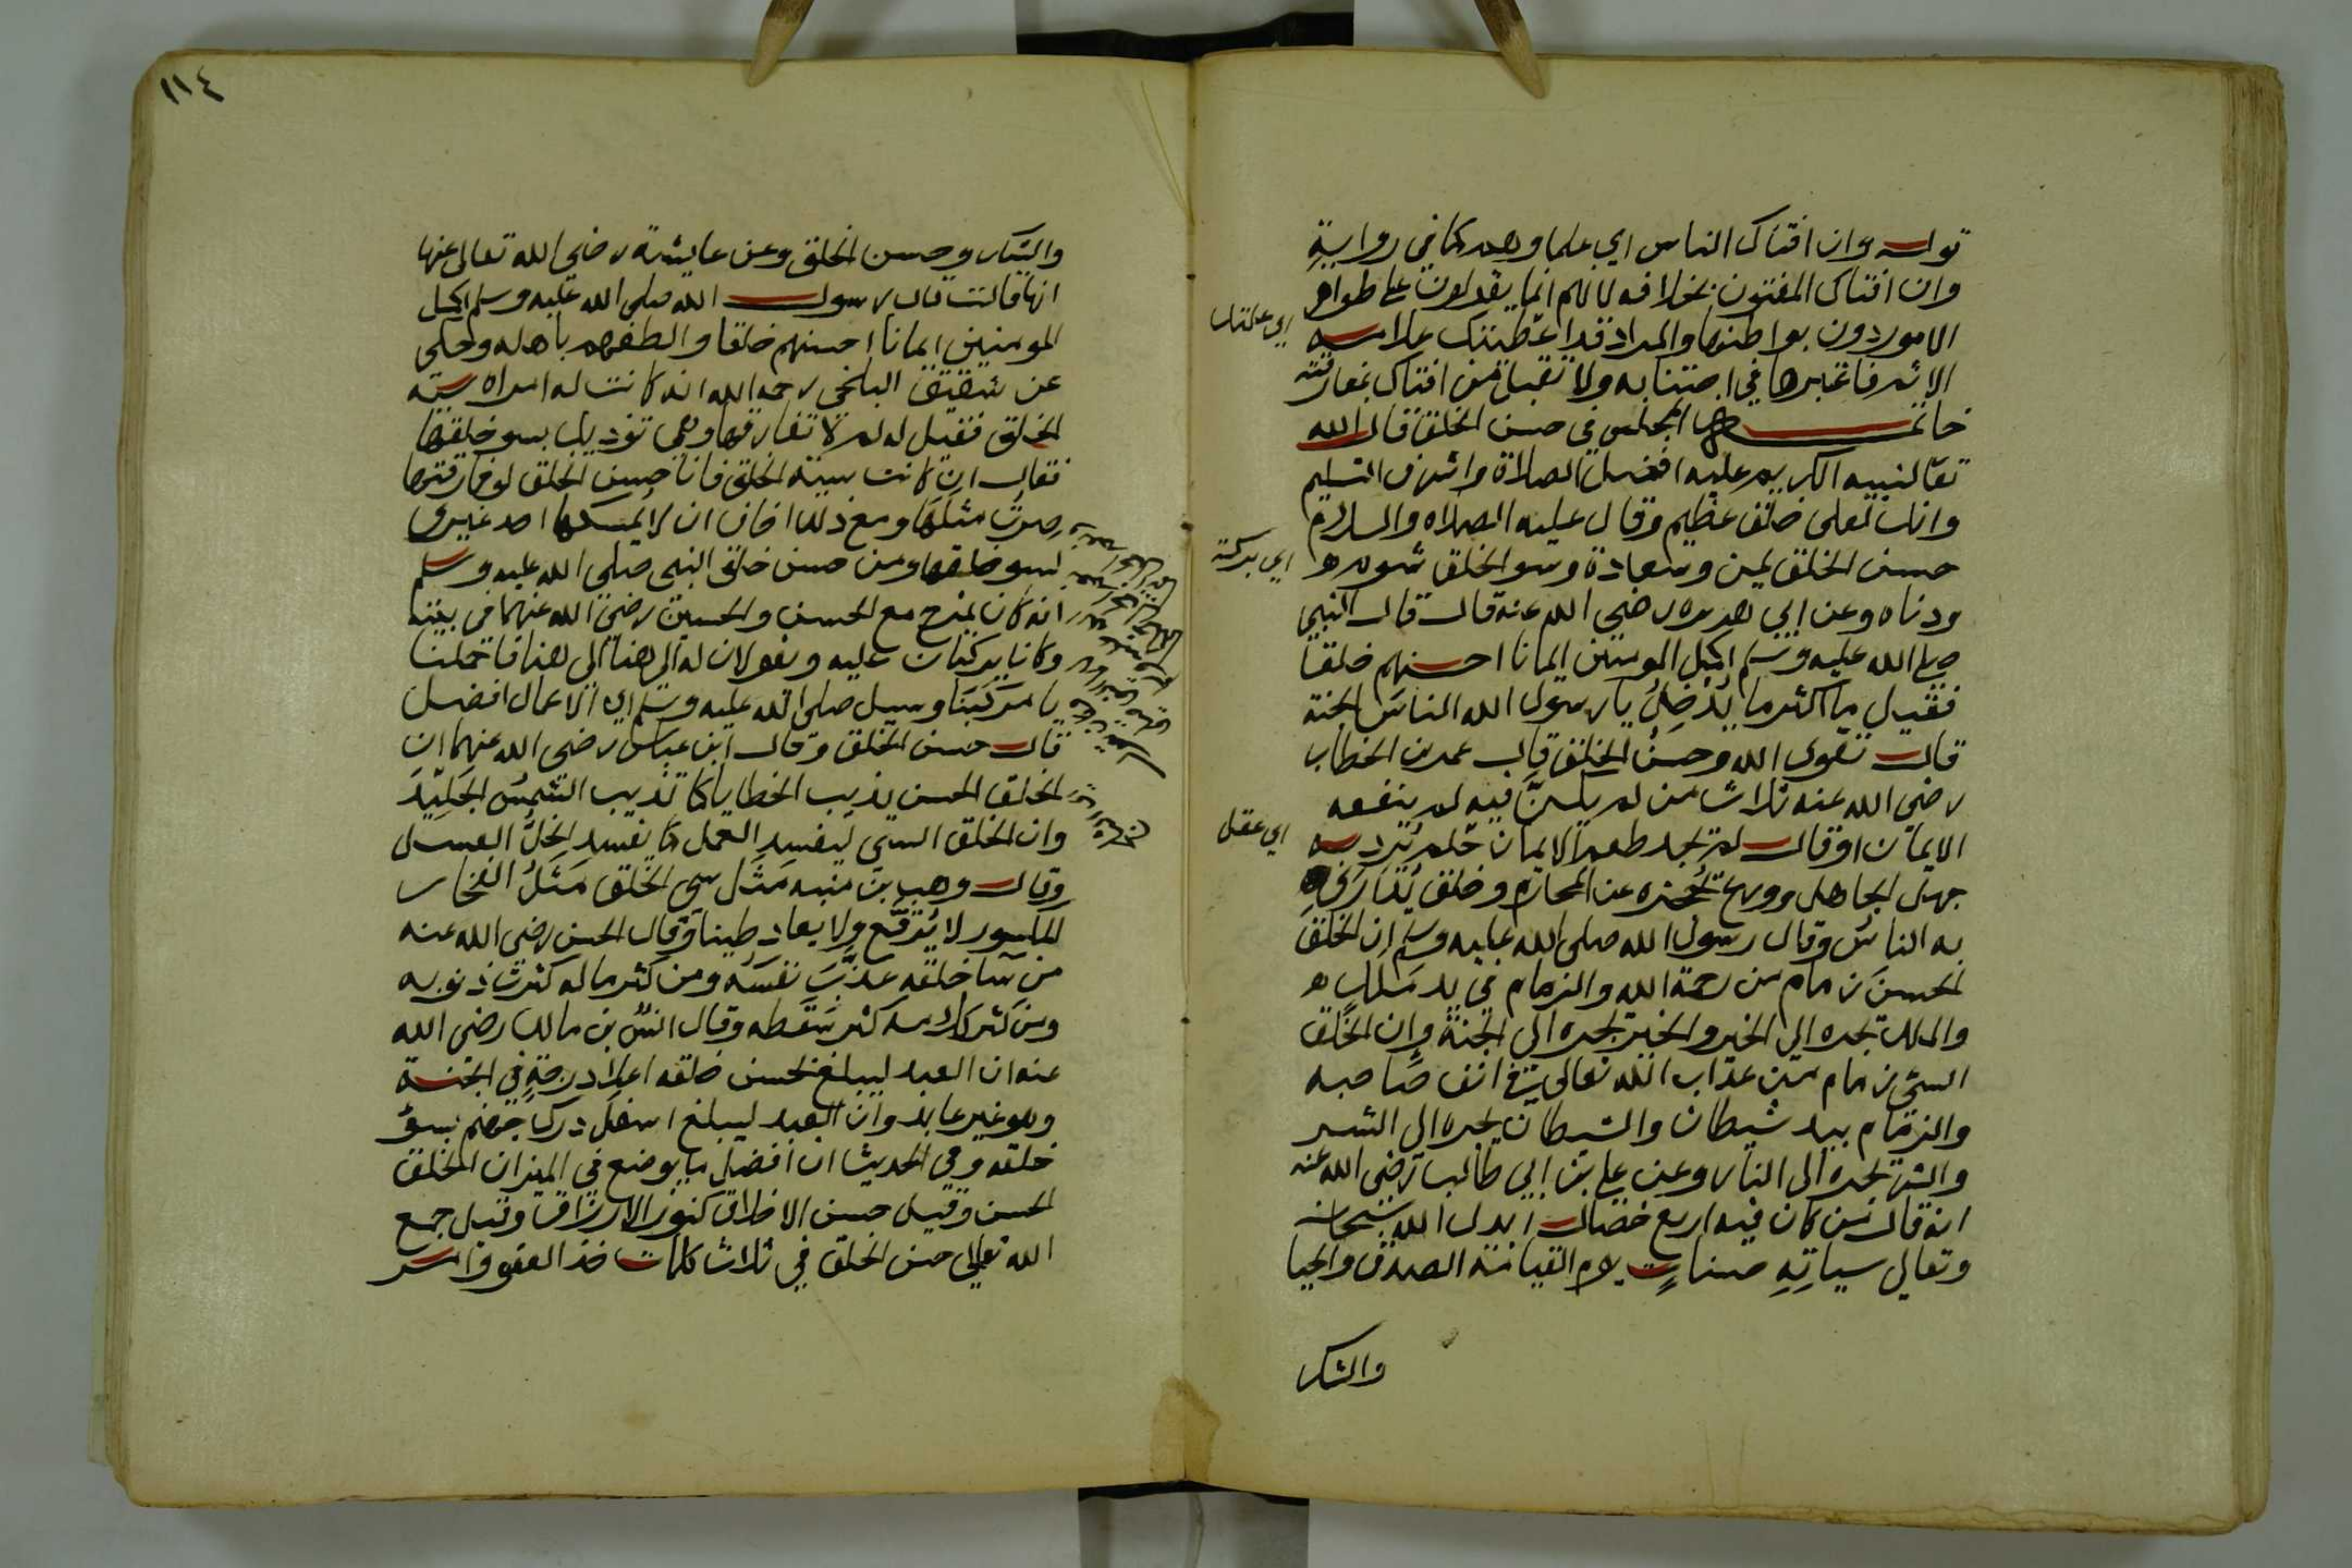 قوله وان افتاك الناس اي علماوهم كما في رواية
وان افتاك المفتون بخلافه لانهم انما يقولون على ظواهر
الامور دون بواطنها والمراد قد اعطيتك علامة
الاثم فاعتبرها في اجتنابه ولا تقبل من افتاك بمقارفته
خاتمة المجلس في حسن الخلق قال الله
تعا لنبيه الكريم عليه افضل الصلاة واشرف التسليم
وانك لعلى خلق عظيم وقال عليه الصلاه والسلام
حسن الخلق يمن وسعادة وسو الخلق شوم
ودناه وعن ابي هريره رضي الله عنه قال قال النبي
صلى الله عليه وسلم اكمل المومنين ايمانا احسنهم خلقا
فقيل ما اكثر ما يُدْخِلُ يا رسول الله الناسَ الجنة
قال تقوى الله وحسنُ الخلق قال عمر بن الخطاب
رضي الله عنه ثلاث من لم يكنَّ فيه لم ينفعه
الايمان او قال لم يجد طعم الايمان حلم يَرد به
جهل الجاهل وورع يحجزه عن المحارم وخلق يُدَارِي
به الناسُ وقال رسول الله صلى الله عليه وسلم ان الخلقَ
الحسنَ زمام من رحمة الله والزمام في يد مَلَكٍ
والملك يجره الى الخير والخير يجره الى الجنة وان الخُلق
السئ زمام من عذاب الله تعالى في انف صاحبه
والزمام بيد شيطان والشيطان يجره الى الشر
والشر يجره الى النار وعن علي بن ابي طالب رضي الله عنه
انه قال من كان فيه اربع خصال ابدل الله سبحانه
وتعالى سياتِهِ حسناتٍ يوم القيامة الصدق والحيا
والشكر
اي علامتك
اي بركة
اي عقل
١١٤
والشكر وحسن الخلق وعن عايشة رضي الله تعالى عنها
انها قالت قال رسول الله صلى الله عليه وسلم اكمل
المومنين ايمانا احسنهم خلقا والطفهم باهله وحكى
عن شقيق البلخي رحمه الله انه كانت له امراه سيئة
الخلق فقيل له لم لا تفارقها وهي توذيك بسو خلقها
فقال ان كانت سيئة الخلق فانا حسن الخلق لو فارقتها
صرتُ مثلَها ومع ذلك اخاف ان لا يمسكها احد غيري
لسو خلقها ومن حسن خلق النبي صلى الله عليه وسلم
انه كان يمزح مع الحسن والحسين رضي الله عنهما في بيته
وكانا يركبان عليه ويقولان له الى هنا الى هنا فاحملنا
يا مركَبَنَا وسيل صلى الله عليه وسلم اي الاعمال افضل
قال حسن الخلق وقال ابن عباس رضي الله عنهما ان
الخلق الحسن يذيب الخطايا كما تذيب الشمسُ الجَلِيدَ
وان الخلق السئ ليفسد العمل كما يفسد الخلُّ العسل
وقال وهب بن منبه مَثَل سئ الخلق مَثَلُ الفخار
المكسور لا يُرَقَّع ولا يعاد طينا وقال الحسن رضي الله عنه
من سآ خلقه عذَّبَ نفسَه ومن كثر ماله كثرت ذنوبه
ومن كثر كلامه كثر سَقَطه وقال انس بن مالك رضي الله
عنه ان العبد ليبلغ بحسن خلقه اعلا درجةٍ في الجنة
وهو غير عابد وان العبد ليبلغ اسفل درك جهنم بسؤ
خلقه وفي الحديث ان افضل ما يوضع في الميزان الخلق
الحسن وقيل حسن الاخلاق كنوز الارزاق وقيل جمع
الله تعالى حسن الخلق في ثلاث كلمات خذ العفو وامر